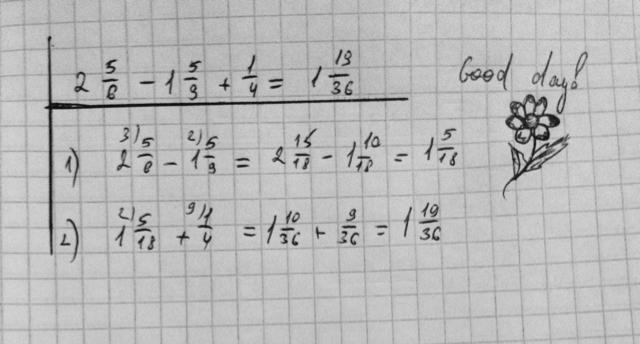 2 5/6 - 1 5/9 + 1/4 = 1 19/36
Good day!
1) 3) 2 5/6 - 2) 1 5/9 = 2 15/18 - 1 10/18 = 1 5/18
2) 2) 1 5/18 + 9) 1/4 = 1 10/36 + 9/36 = 1 19/36